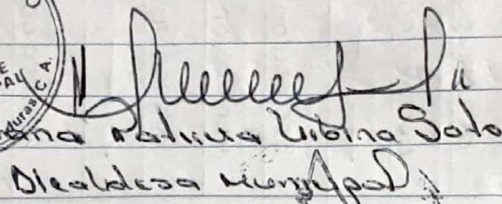 duras C. A.
Patricia Urbina Soto
Alcaldesa Municipal